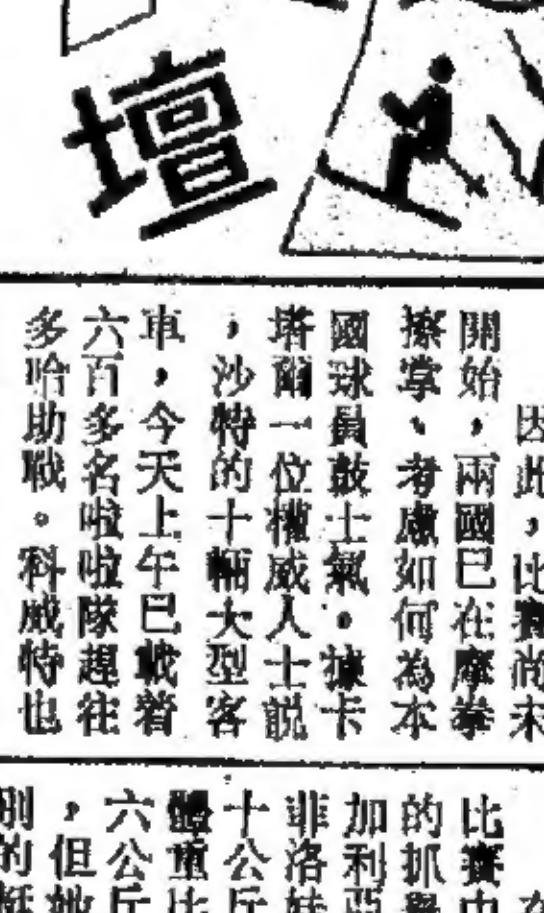 壇
因此，比賽尚未
開始，兩國已在摩拳
擦掌、考慮如何為本
國球員鼓士氣。據卡
塔爾一位權威人士説
，沙特的十輛大型客
車，今天上午已載着
六百多名啦啦隊趕往
多哈助戰。科威特也
比賽中
的抓舉
加利亞
菲洛娃
十公斤
體重比
六公斤
，但她
別的挺